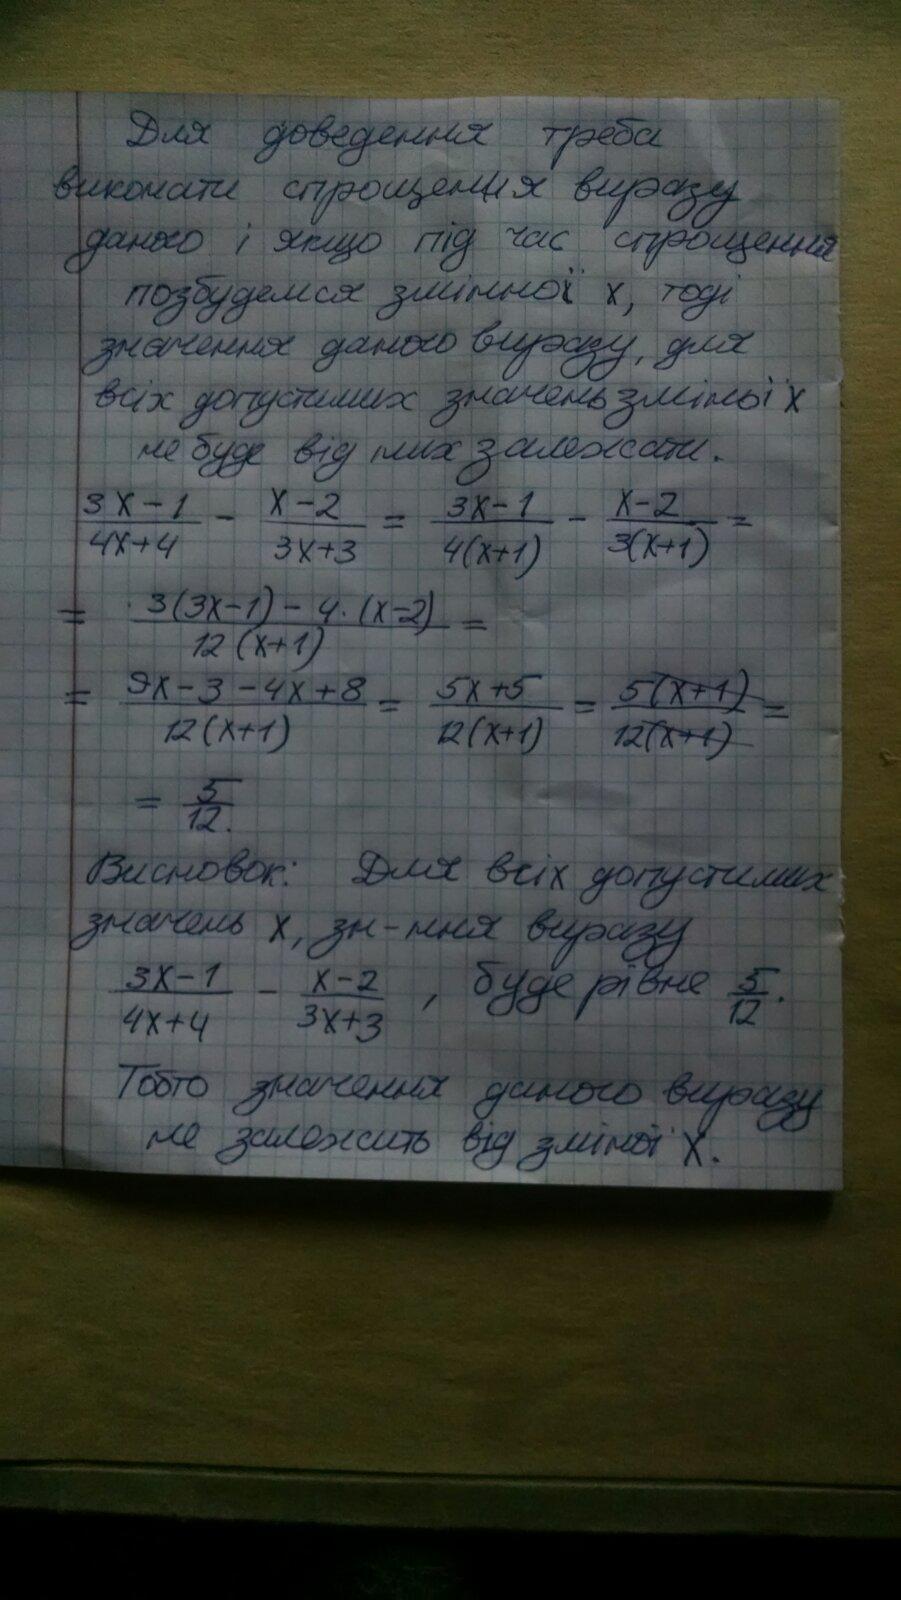 Для доведення треба
виконати спрощення виразу
даного і якщо під час спрощення
позбудемся змінної x, тоді
значення даного виразу, для
всіх допустимих значень зміної x
не буде від них залежати.
(3x-1)/(4x+4) - (x-2)/(3x+3) = (3x-1)/(4(x+1)) - (x-2)/(3(x+1)) =
= (3(3x-1) - 4·(x-2))/(12(x+1)) =
= (9x-3-4x+8)/(12(x+1)) = (5x+5)/(12(x+1)) = (5(x+1))/(12(x+1)) =
= 5/12.
Висновок: Для всіх допустимих
значень x, зн-ння виразу
(3x-1)/(4x+4) - (x-2)/(3x+3), буде рівне 5/12.
Тобто значення даного виразу
не залежить від зміної x.